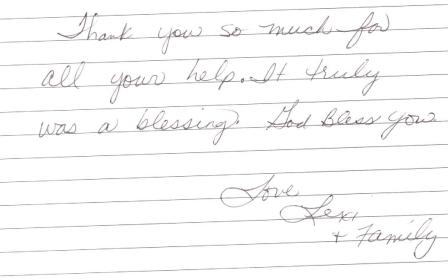 Thank you so much for
all your help. It truly
was a blessing. God Bless you
Love
Lexi
+ Family